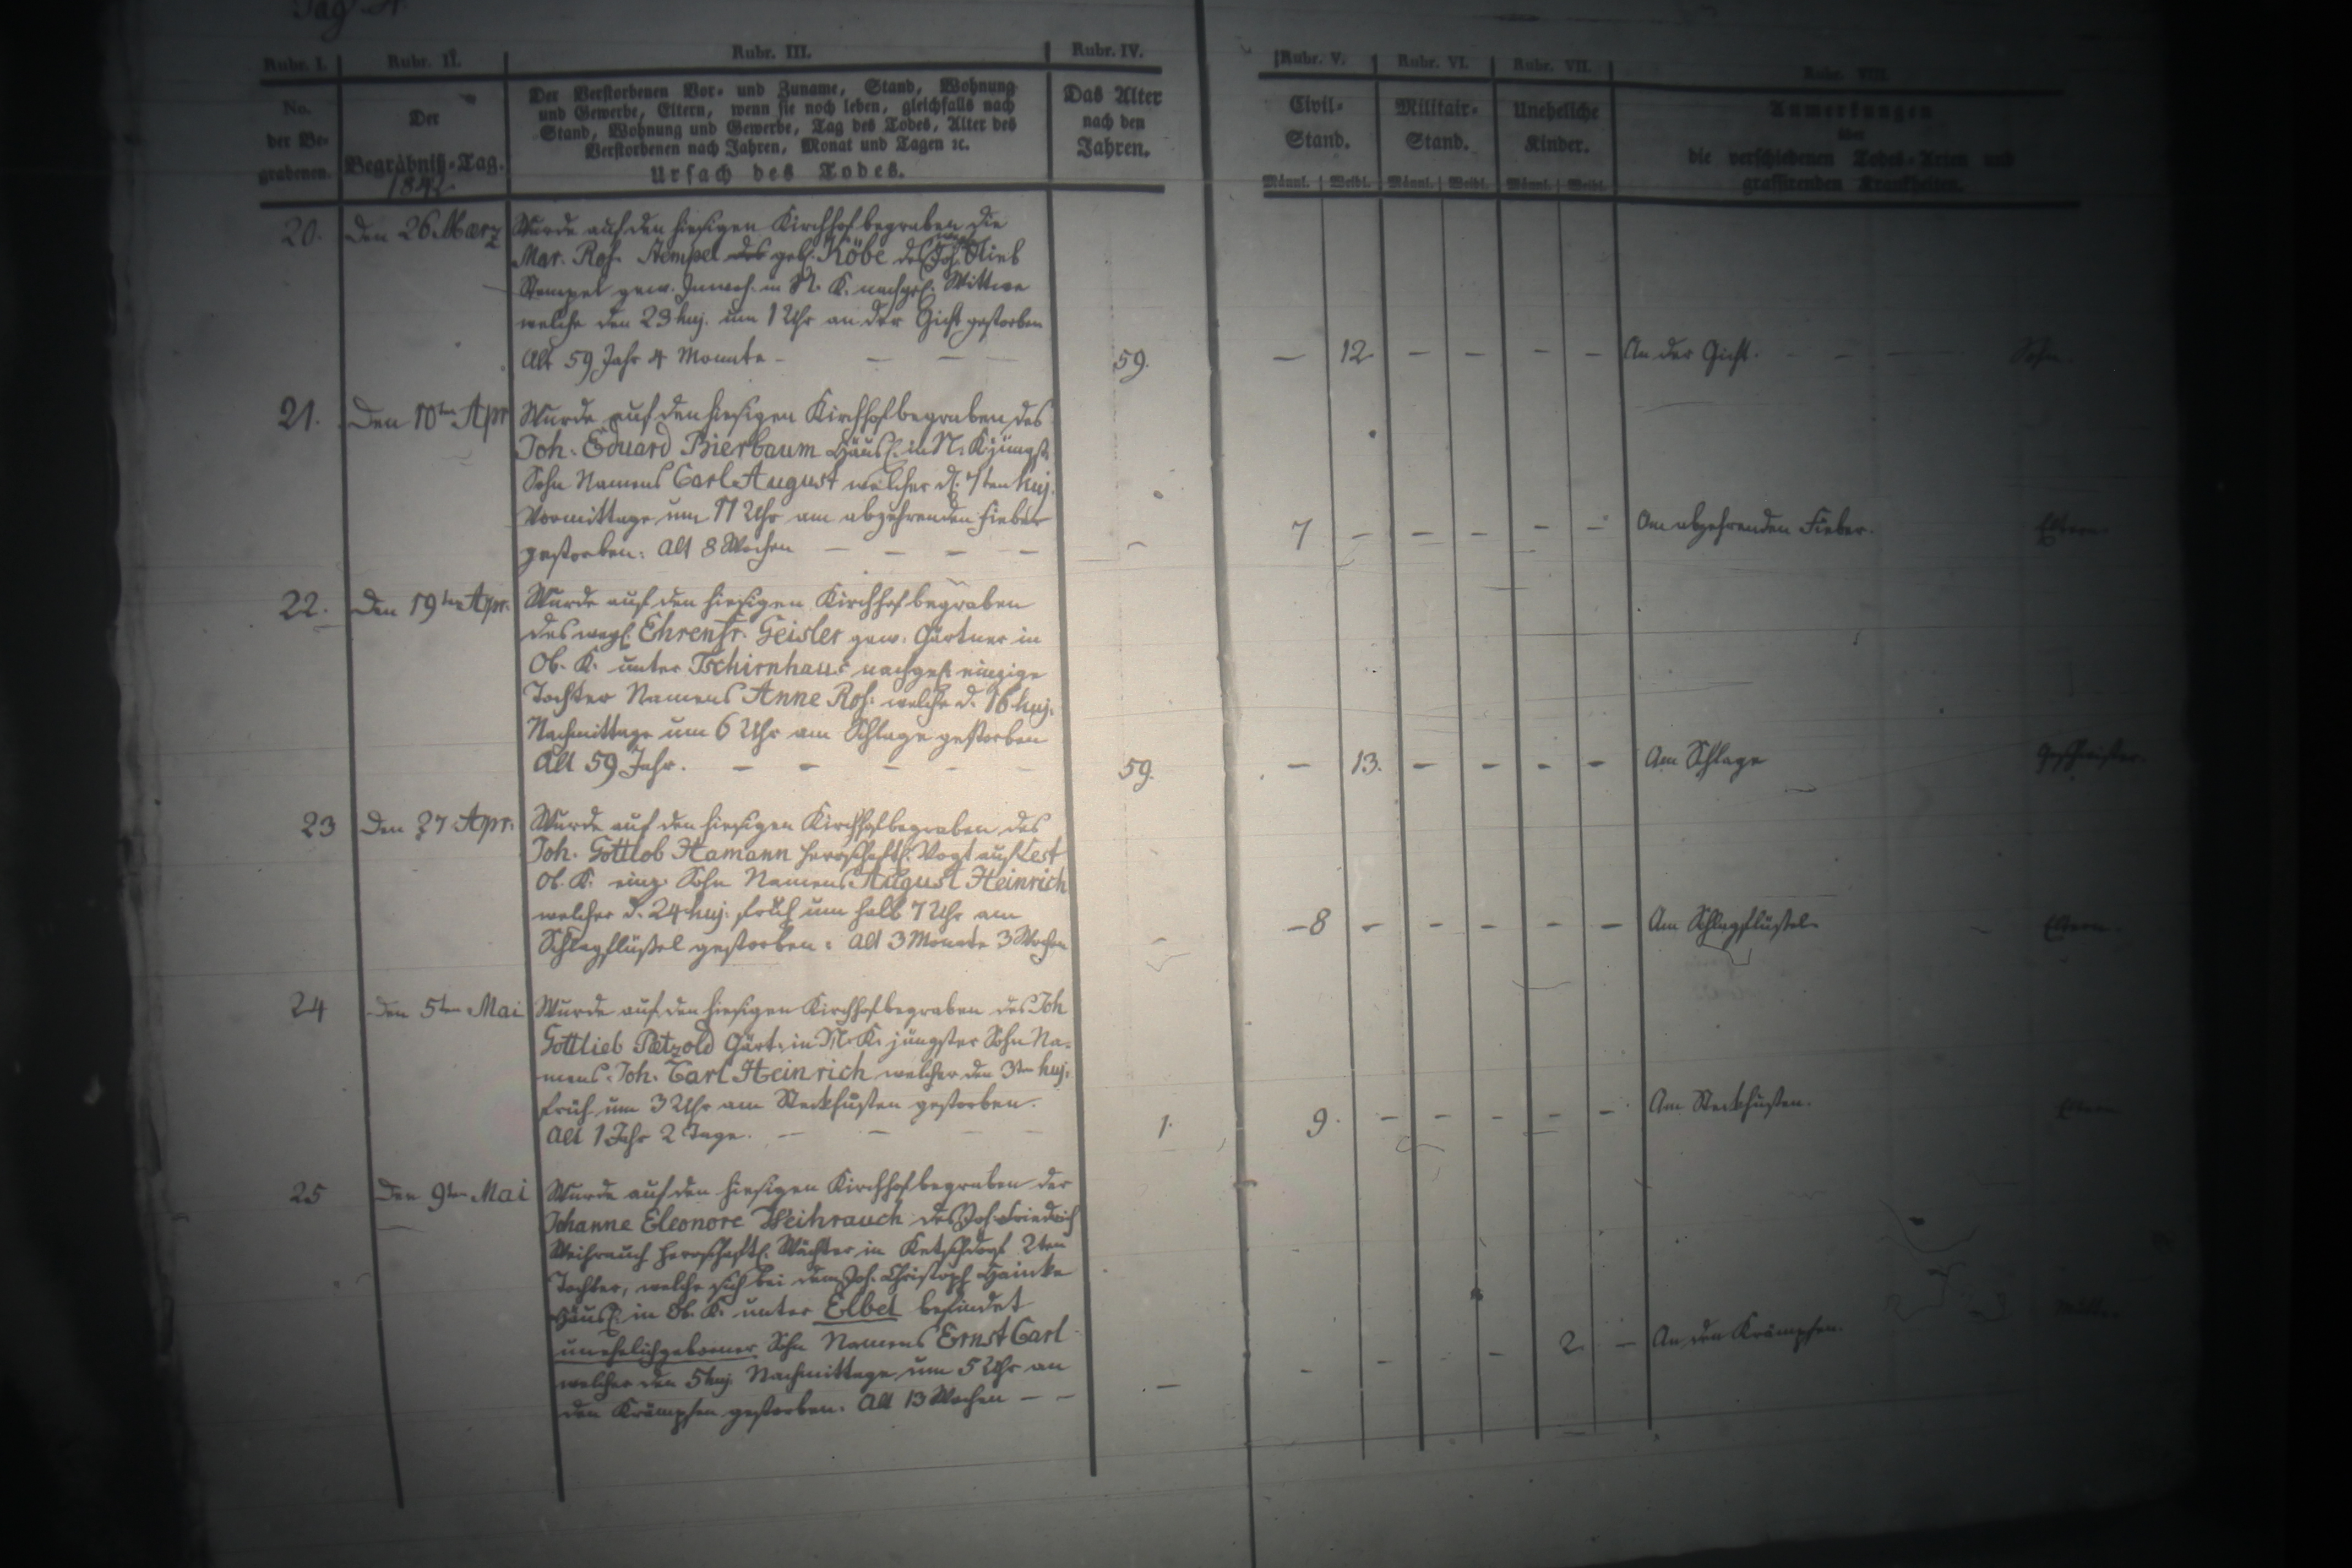 Rubr. I. Rubr. II. Rubr. III. Rubr. IV. Rubr. V. Rubr. VI. Rubr. VII. Rubr. VIII.
No. der Be- grabenen.
Der Begräbniß-Tag.
1842
Der Verstorbenen Vor- und Zuname, Stand, Wohnung
und Gewerbe, Eltern, wenn sie noch leben, gleichfalls nach
Stand, Wohnung und Gewerbe, Tag des Todes, Alter des
Verstorbenen nach Jahren, Monat und Tagen ꝛc.
Ursach des Todes.
Das Alter
nach den
Jahren.
Civil-
Stand.
Militair-
Stand.
Uneheliche
Kinder.
Männl. Weibl. Männl. Weibl. Männl. Weibl.
Anmerkungen
über
die verschiedenen Todes-Arten und
grassirenden Krankheiten.
20. Den 26 Maerz Wurde auf den hiesigen Kirchhof begraben die
Mar. Ros. Stempel geb. Köbe des Joh. Glieb
Stempel gew. Inwoh. in N. K. nachgel. Wittwe
welche den 23 huj. um 1 Uhr an der Gicht gestorben
Alt 59 Jahr 4 Monate - — — —
59. — 12. — — — — An der Gicht. — — Sohn
21. Den 10ten Apr Wurde auf den hiesigen Kirchhof begraben des
Joh. Eduard Bierbaum Häusl. in N. K. jüngst.
Sohn Namens Carl August welcher d. 7ten huj.
Vormittags um 11 Uhr am abzehrenden Fieber
gestorben. Alt 8 Wochen — — — —
— 7 — — — — — Am abzehrenden Fieber. Eltern.
22. Den 19ten Apr. Wurde auf den hiesigen Kirchhof begraben
des weyl. Ehrenfr. Geisler gew. Gärtner in
Ob. K. unter Tschirnhaus nachgel. einzige
Tochter Namens Anne Ros. welche d. 16 huj.
Nachmittags um 6 Uhr am Schlage gestorben
Alt 59 Jahr. — — — — —
59. — 13. — — — — Am Schlage Geschwister.
23 Den 27 Apr. Wurde auf den hiesigen Kirchhof begraben des
Joh. Gottlob Hamann herrschaftl. Vogt auf Lest
Ob. K. einz. Sohn Namens August Heinrich
welcher d. 24 huj. früh um halb 7 Uhr am
Schlagflüßel gestorben. Alt 3 Monate 3 Wochen
— 8 — — — — — Am Schlagflüßel. Eltern.
24 Den 5ten Mai Wurde auf den hiesigen Kirchhof begraben des Joh
Gottlieb Pätzold Gärt. in N. K. jüngster Sohn Na-
mens Joh. Carl Heinrich welcher den 3ten huj.
früh um 3 Uhr am Steckhusten gestorben.
Alt 1 Jahr 2 Tage. — — — —
1. 9. — — — — — Am Steckhusten. Eltern
25 Den 9ten Mai Wurde auf den hiesigen Kirchhof begraben der
Johanne Eleonore Weihrauch des Joh. Friedrich
Weihrauch herrschaftl. Wächter in Ketschdorf 2ten
Tochter, welche sich bei dem Joh. Christoph Hainke
Häusl. in Ob. K. unter Elbel befindet
unehelichgeborner Sohn Namens Ernst Carl
welcher den 5 huj. Nachmittags um 5 Uhr an
den Krämpfen gestorben. Alt 13 Wochen — —
— — — — — 2 — An den Krämpfen.